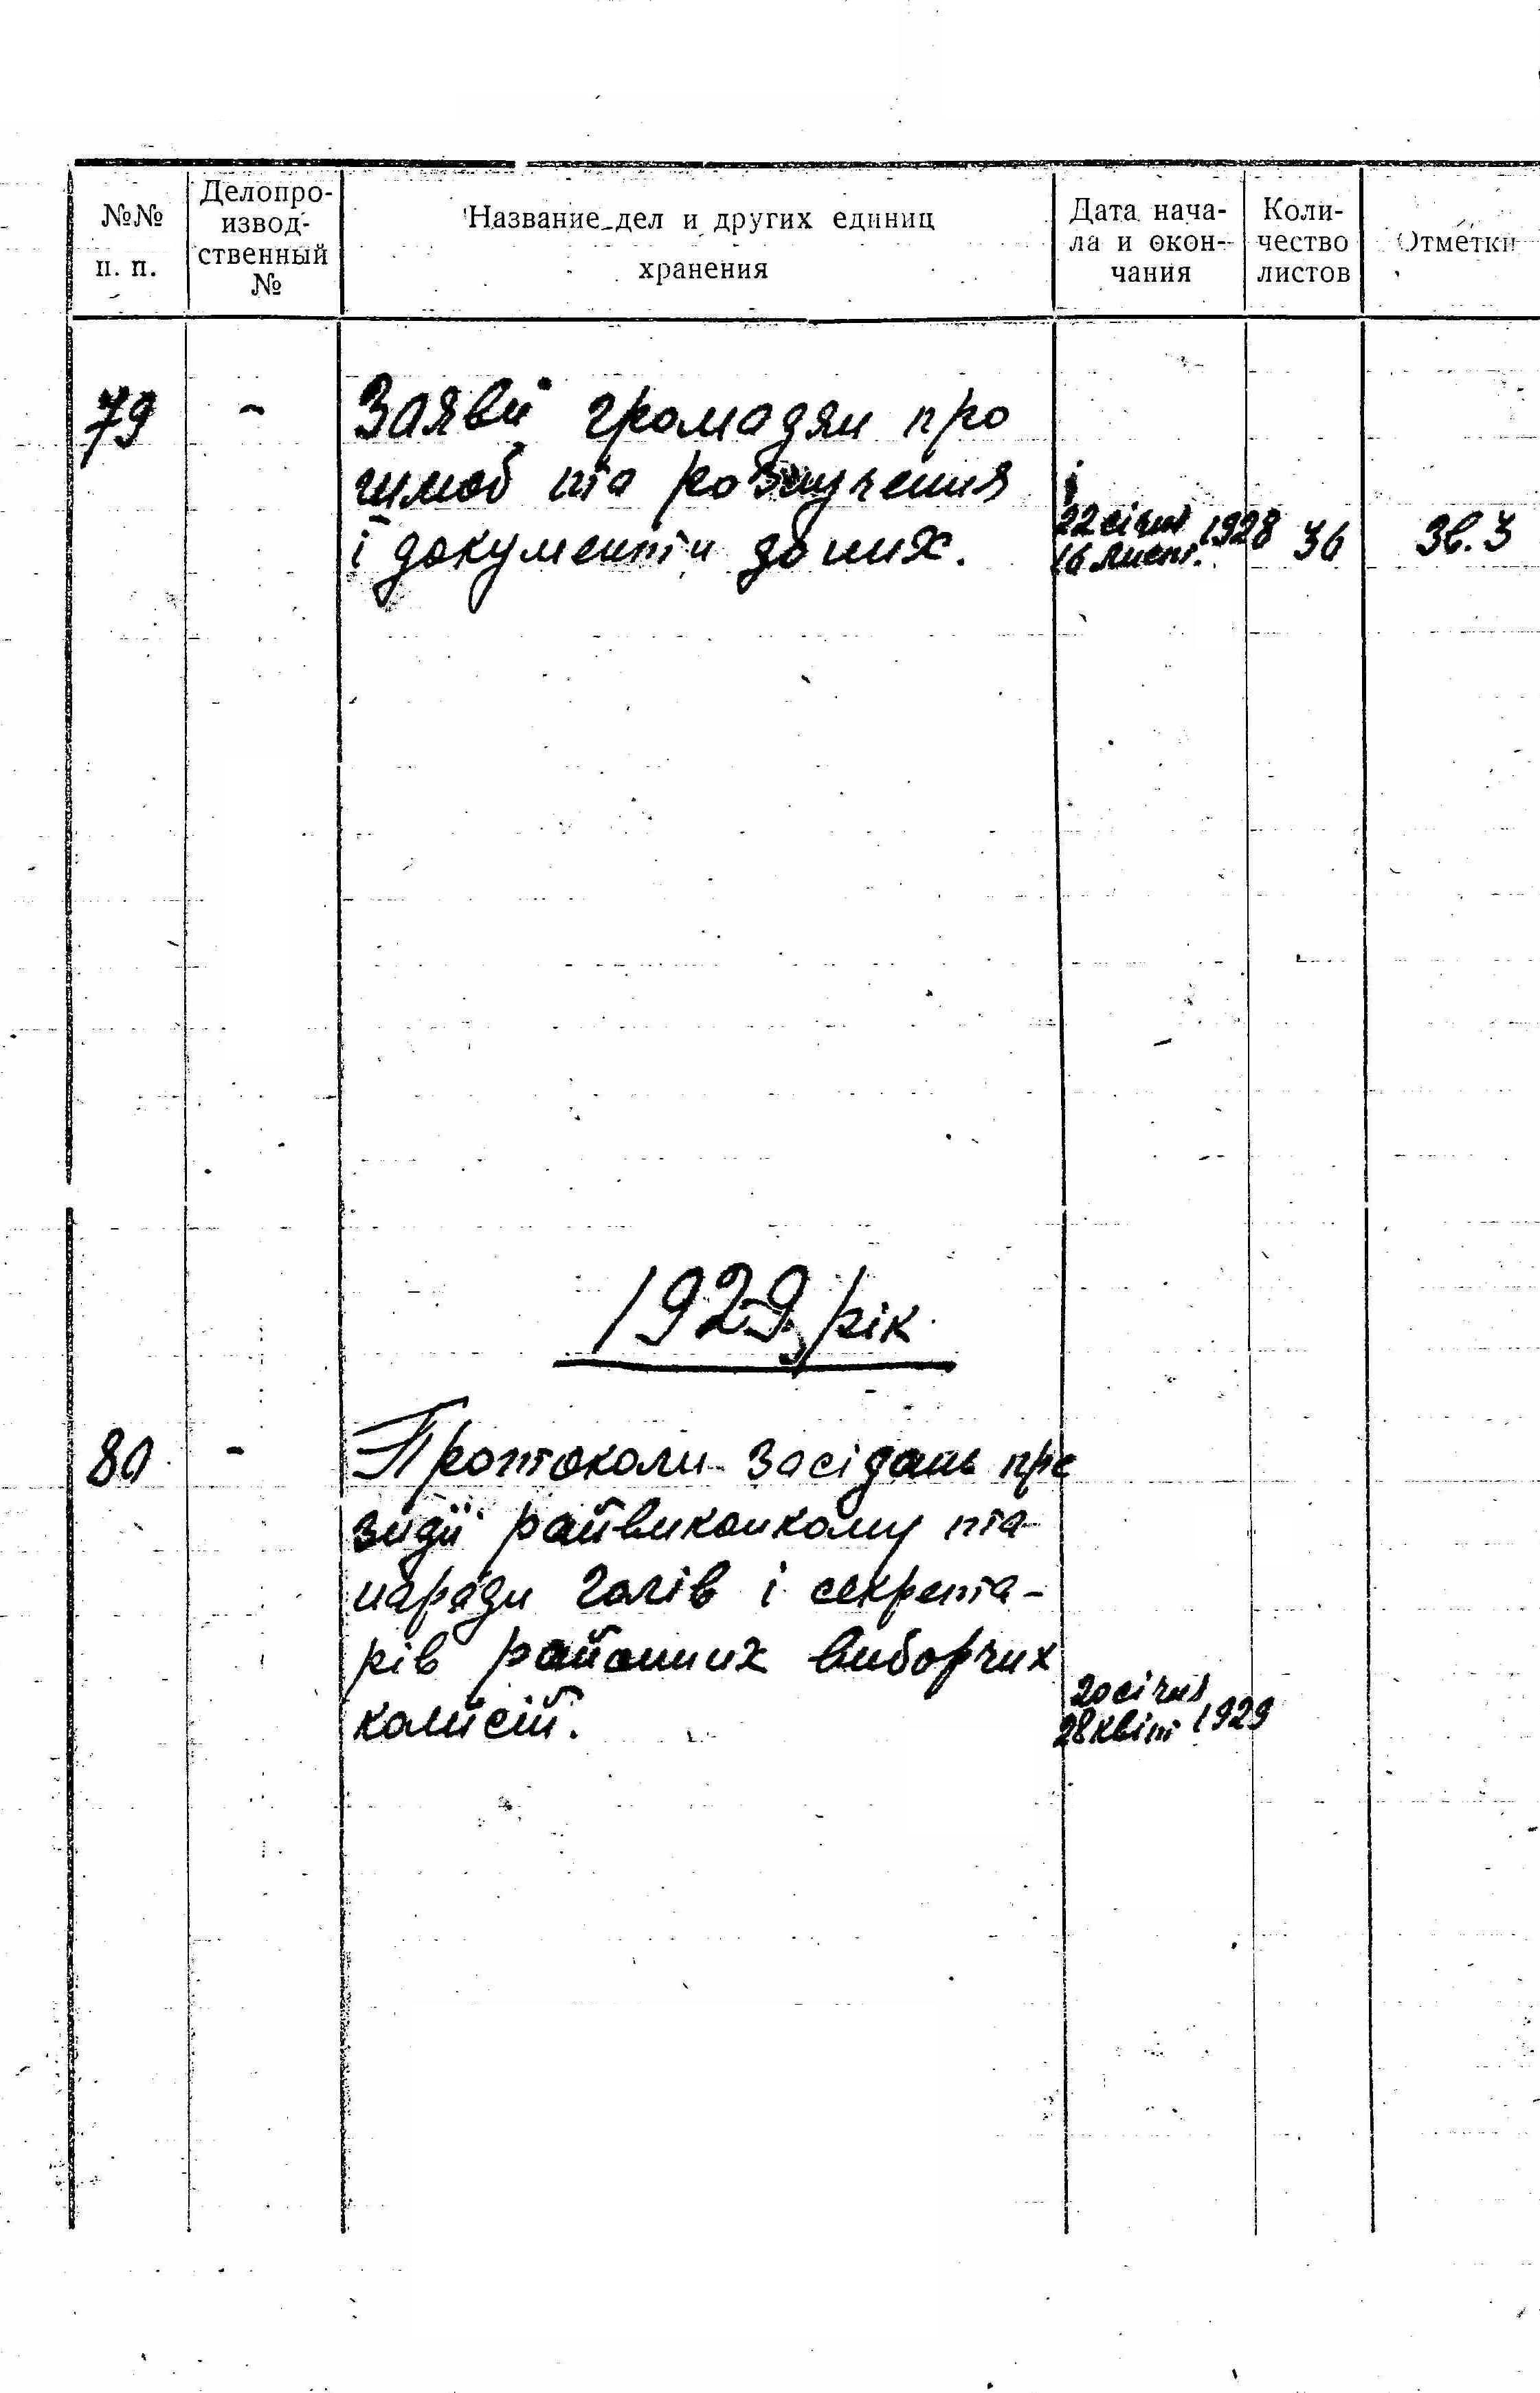 №№ п. п.
Делопро-
извод-
ственный
№
Название дел и других единиц
хранения
Дата нача-
ла и окон-
чания
Коли-
чество
листов
Отметки
79 - Заяви громадян про
шлюб та розлучення
і документи до них. 22 січня 16 лист. 1928 36 Зв. 3
1929 рік
80 - Протоколи засідань пре
зидії райвиконкому та
наради голів і секрета-
рів районних виборчих
комісій. 20 січня 28 квіт 1929